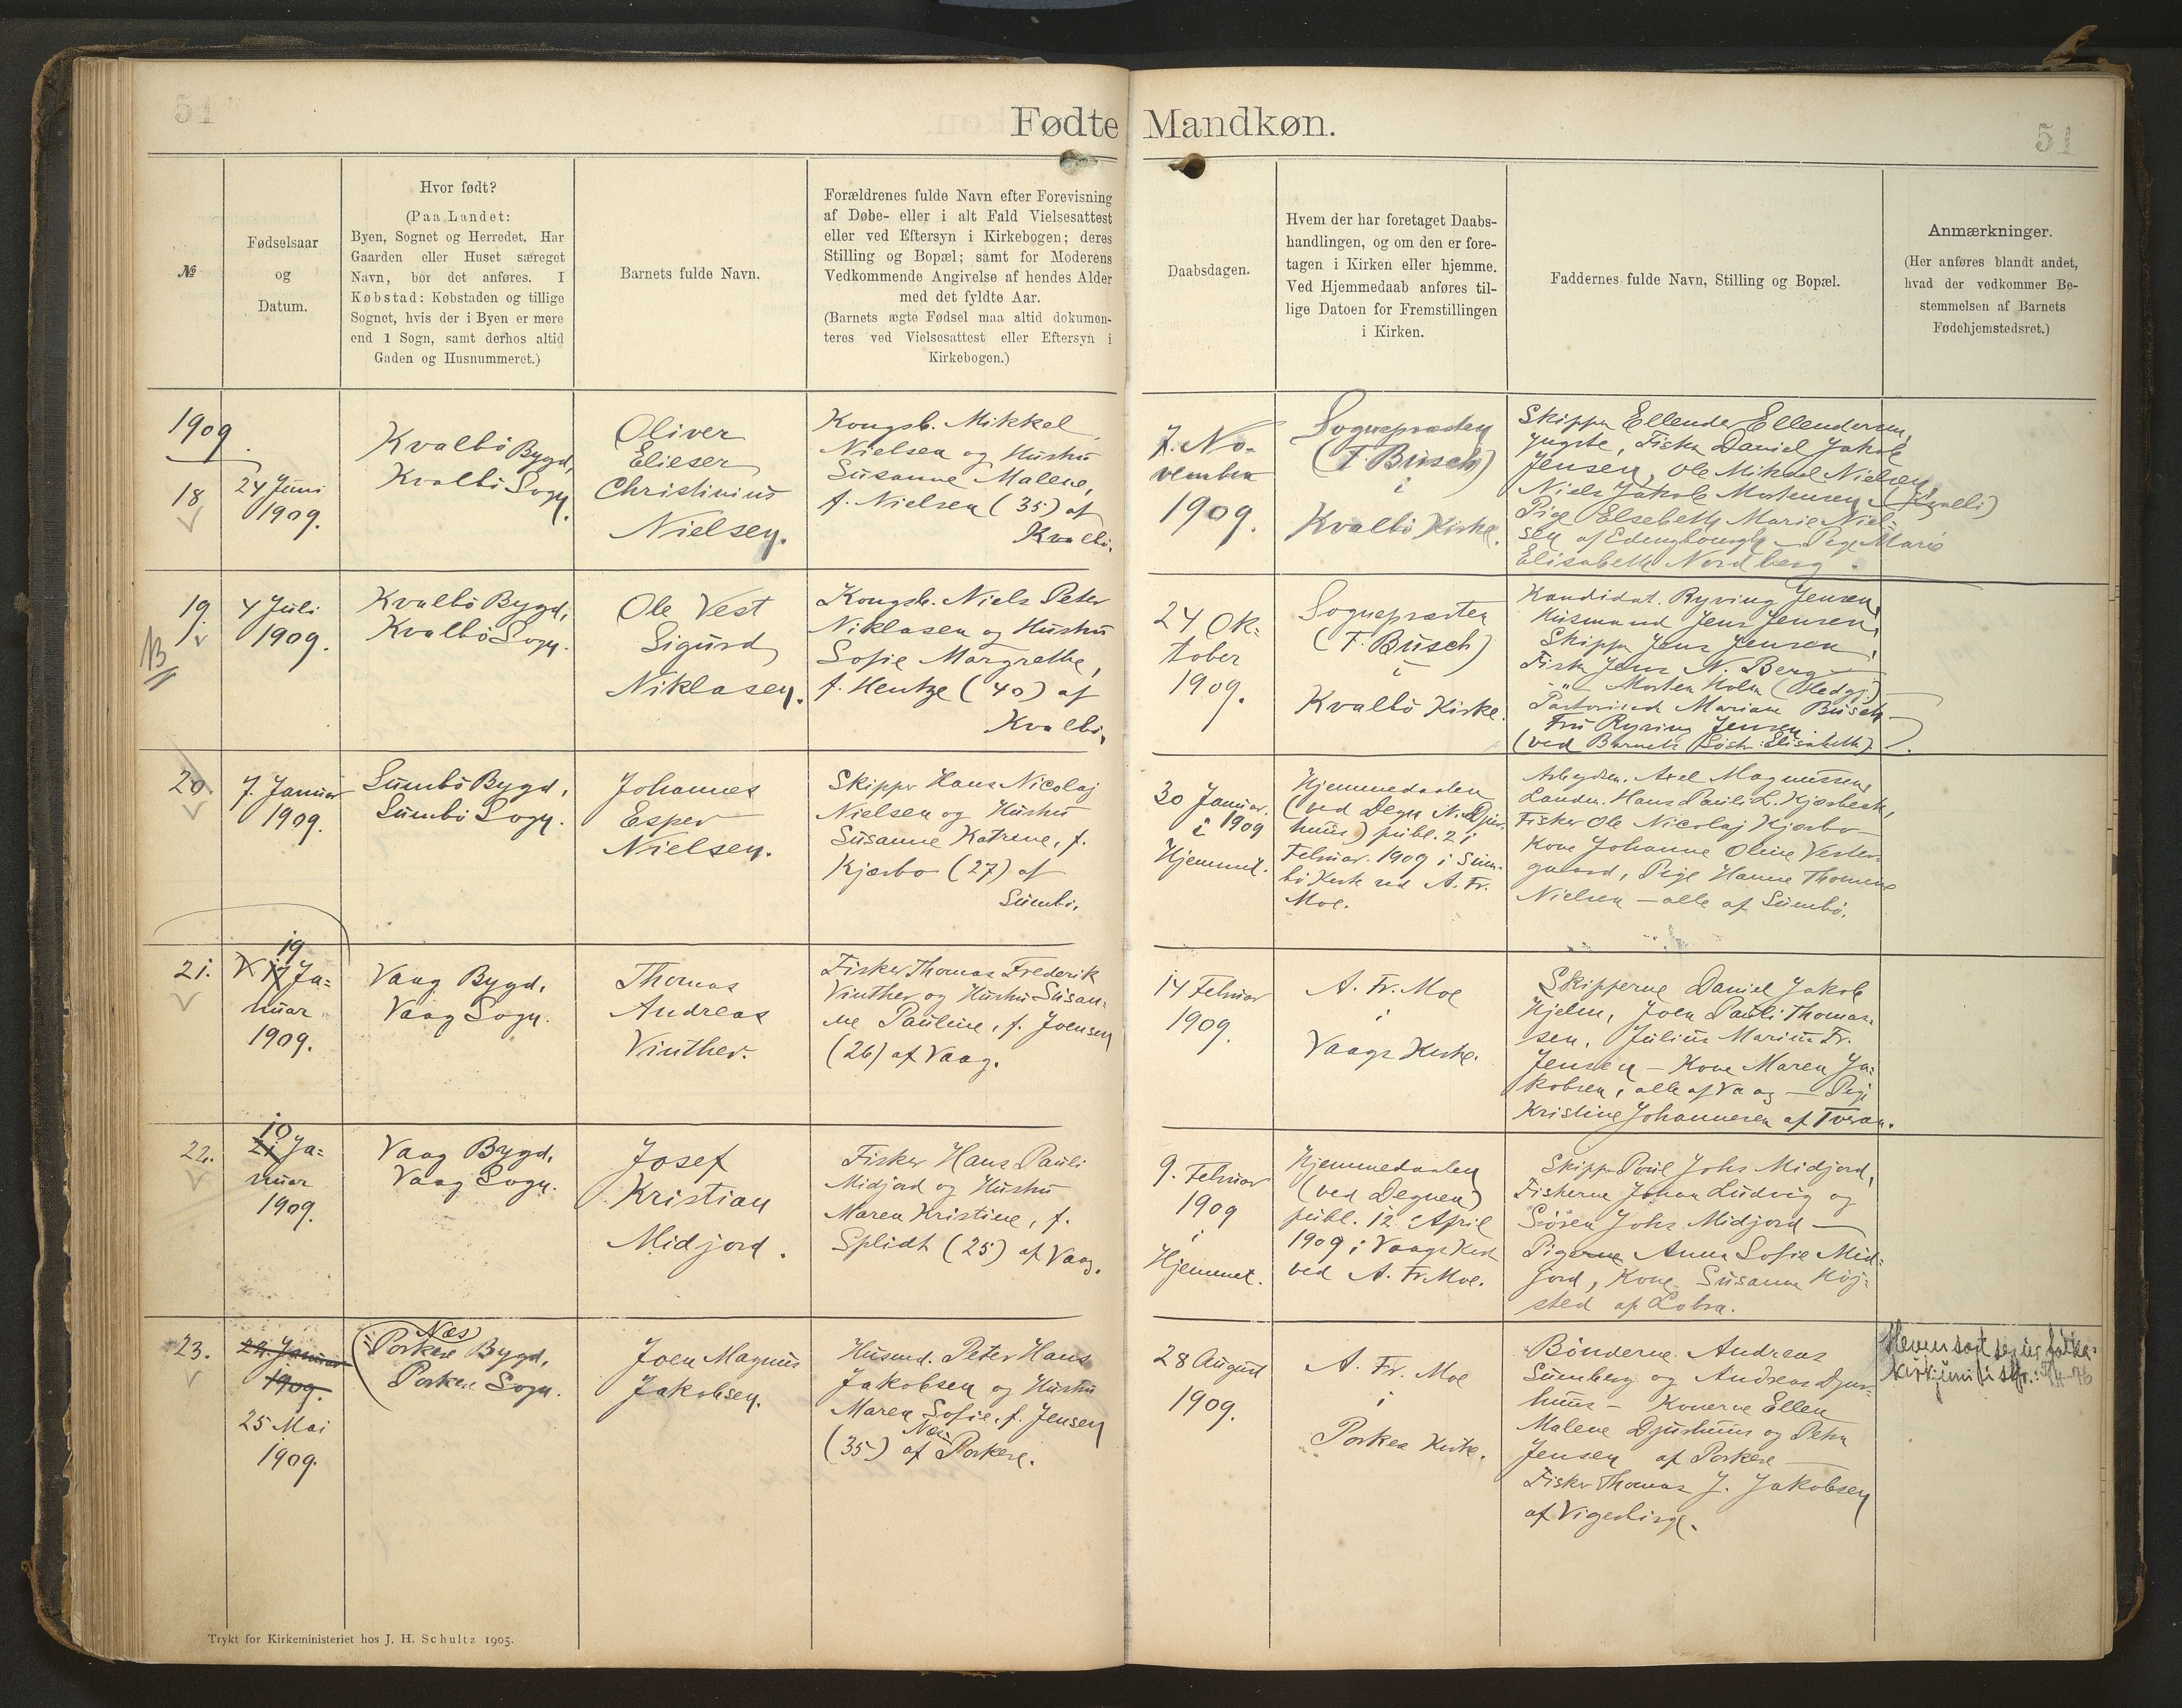 51
Fødte Mandkøn.
51
№
Fødselsaar
og
Datum.
Hvor født?
(Paa Landet:
Byen, Sognet og Herredet. Har
Gaarden eller Huset særeget
Navn, bør det anføres. I
Købstad: Købstaden og tillige
Sognet, hvis der i Byen er mere
end 1 Sogn, samt derhos altid
Gaden og Husnummeret.)
Barnets fulde Navn.
Forældrenes fulde Navn efter Forevisning
af Døbe- eller i alt Fald Vielsesattest
eller ved Eftersyn i Kirkebogen; deres
Stilling og Bopæl; samt for Moderens
Vedkommende Angivelse af hendes Alder
med det fyldte Aar.
(Barnets ægte Fødsel maa altid dokumen-
teres ved Vielsesattest eller Eftersyn i
Kirkebogen.)
Daabsdagen.
Hvem der har foretaget Daabs-
handlingen, og om den er fore-
tagen i Kirken eller hjemme.
Ved Hjemmedaab anføres til-
lige Datoen for Fremstillingen
i Kirken.
Faddernes fulde Navn, Stilling og Bopæl.
Anmærkninger.
(Her anføres blandt andet,
hvad der vedkommer Be-
stemmelsen af Barnets
Fødehjemstedsret.)
1909.
18
24 Juni
1909.
Kvalbö Bygd,
Kvalbö Sogn.
Oliver
Elieser
Christinius
Nielsen.
Kongsb. Mikkel
Nielsen og Hustru
Susanne Malene,
f. Nielsen (35) af
Kvalbö.
7. No-
vember
1909.
Sognepræsten
(F. Busch)
i
Kvalbö Kirke.
Skipper Ellender Ellendersen,
yngste, Fisker Daniel Jakob
Jensen, Ole Mikkel Nielsen,
Niels Jakob Mortensen (Kvalbö)
Pige Elsebeth Marie Niel-
sen af Edingbourgh - Pige Marie
Elisabeth Nordberg.
19
B
4 Juli
1909.
Kvalbö Bygd,
Kvalbö Sogn.
Ole Vest
Sigurd
Niklasen.
Kongsb. Niels Peter
Niklasen og Hustru
Sofie Margrethe,
f. Hentze (40) af
Kvalbö.
24 Ok-
tober
1909.
Sognepræsten
(F. Busch)
i
Kvalbö Kirke.
Kandidat. Ryving Jensen,
Husmand Jens Jensen,
Skipper Jens Jensen,
Fisker Jens N. Berg
-"- Morten Holm
Mariane Busch
Fru Ryving Jensen
(ved Barnets Søster: Elisabeth).
20
7. Januar
1909.
Sumbö Bygd,
Sumbö Sogn.
Johannes
Esper
Nielsen.
Skipper Hans Nicolaj
Nielsen og Hustru
Susanne Katrine, f.
Kjærbo (27) af
Sumbö.
30 Januar
1909
i
Hjemmet.
Hjemmedaaben
(ved Degn N. Djur-
huus) publ. 21
Februar. 1909 i Sum-
bö Kirke ved A. Fr.
Moe.
Axel Magnussen,
Landm. Hans Pauli L. Kjærbech,
Fisker Ole Nicolaj Kjærbo -
Kone Johanne Oline Vester-
gaard, Pige Hanne Thomine
Nielsen - alle af Sumbö.
21.
19
17 Ja-
nuar
1909.
Vaag Bygd,
Vaag Sogn.
Thomas
Andreas
Vinther.
Fisker Thomas Frederik
Vinther og Hustru Susan-
ne Pauline, f. Joensen
(26) af Vaag.
14 Februar
1909.
A. Fr. Moe
i
Vaags Kirke.
Skipperne Daniel Jakob
Hjelm, Joen Pauli Thomas-
sen, Julius Marius Fr.
Jensen - Kone Maren Ja-
kobsen, alle af Vaag - Pige
Kristine Johannesen af Tveraa.
22.
10
21 Ja-
nuar
1909.
Vaag Bygd,
Vaag Sogn.
Josef
Kristian
Midjord.
Fisker Hans Pauli
Midjord og Hustru
Maren Kristine, f.
Splidt (25) af Vaag.
9. Februar
1909
i
Hjemmet.
Hjemmedaaben
(ved Degnen)
publ. 12 April
1909 i Vaags Kirke
ved A. Fr. Moe.
Skipper Poul Johs Midjord,
Fiskerne Johan Ludvig og
Søren Johs. Midjord -
Pigerne Anna Sofie Mid-
jord, Kone Susanna Höj-
sted af Lobra.
23.
24. Januar
1909.
25 Mai
1909.
Næs
Porkere Bygd,
Porkere Sogn.
Joen Magnus
Jakobsen.
Husmd. Peter Hans
Jakobsen og Hustru
Maren Sofie, f. Jensen
Næs
(35) af Porkere.
28 August
1909.
A. Fr. Moe
i
Porkere Kirke.
Bønderne Andreas
Sumberg og Andreas Djur-
huus - Konerne Ellen
Malene Djurhuus og Petra
Jensen af Porkere -
Fisker Thomas J. Jakobsen
af Vigerbirge.
Hevur sagt seg úr fólka-
kirkjuni
Trykt for Kirkeministeriet hos J. H. Schultz 1905.